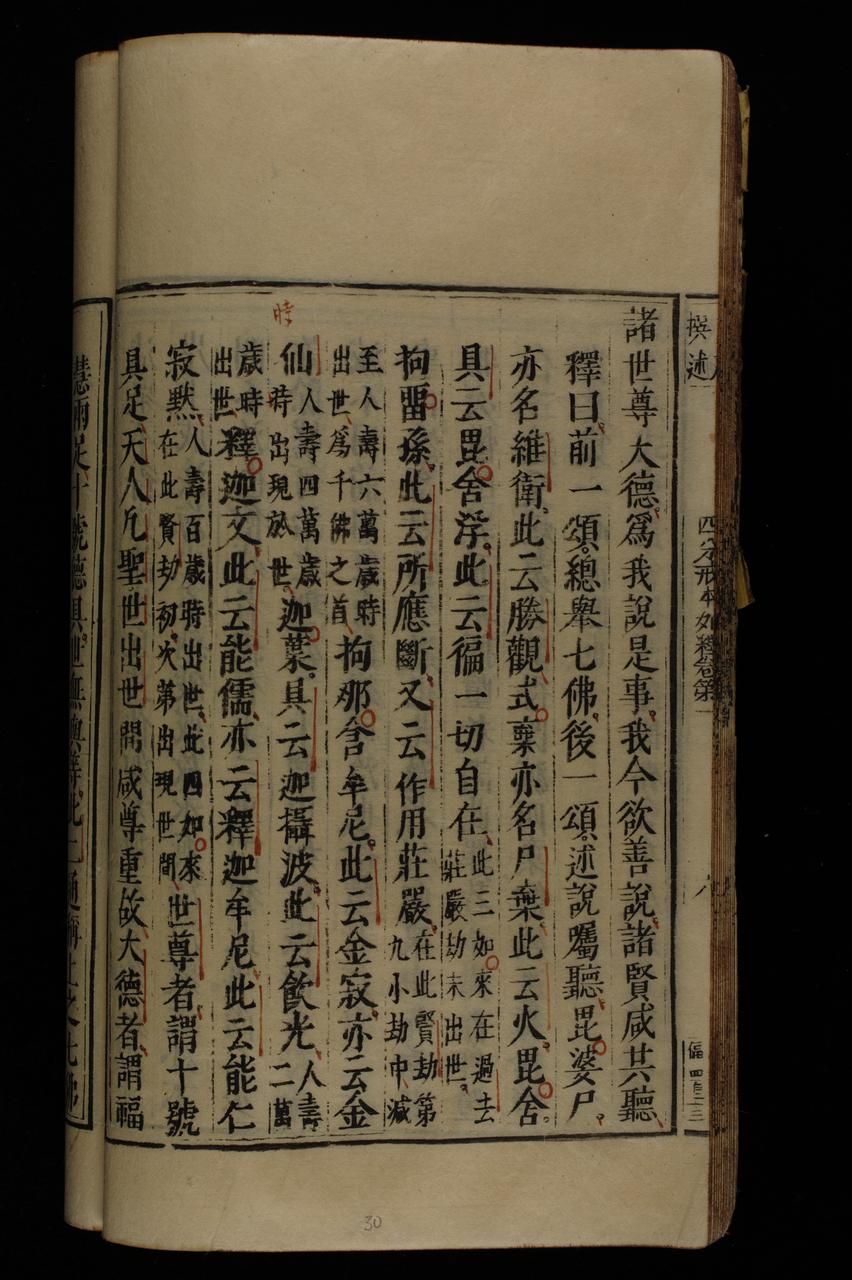 撰述
四分戒本如釋卷第一
諸世尊大德爲我說是事我今欲善說諸賢咸共聽
釋曰前一頌總舉七佛後一頌述說囑聽毘婆尸
亦名維衛此云勝觀式棄亦名尸棄此云火毘舍
具云毘舍浮此云徧一切自在此三如來在過去莊嚴劫末出世
拘畱孫此云所應斷又云作用莊嚴在此賢劫第九小劫中減
至人壽六萬歲時出世爲千佛之首拘那含牟尼此云金寂亦云金
仙人壽四萬歲時出現於世迦葉具云迦攝波此云飲光人壽二萬
歲時出世釋迦文此云能儒亦云釋迦牟尼此云能仁
寂默人壽百歲時出世此四如來在此賢劫初次第出現世間世尊者謂十號
具足天人凡聖世出世間咸尊重故大德者謂福
時
30